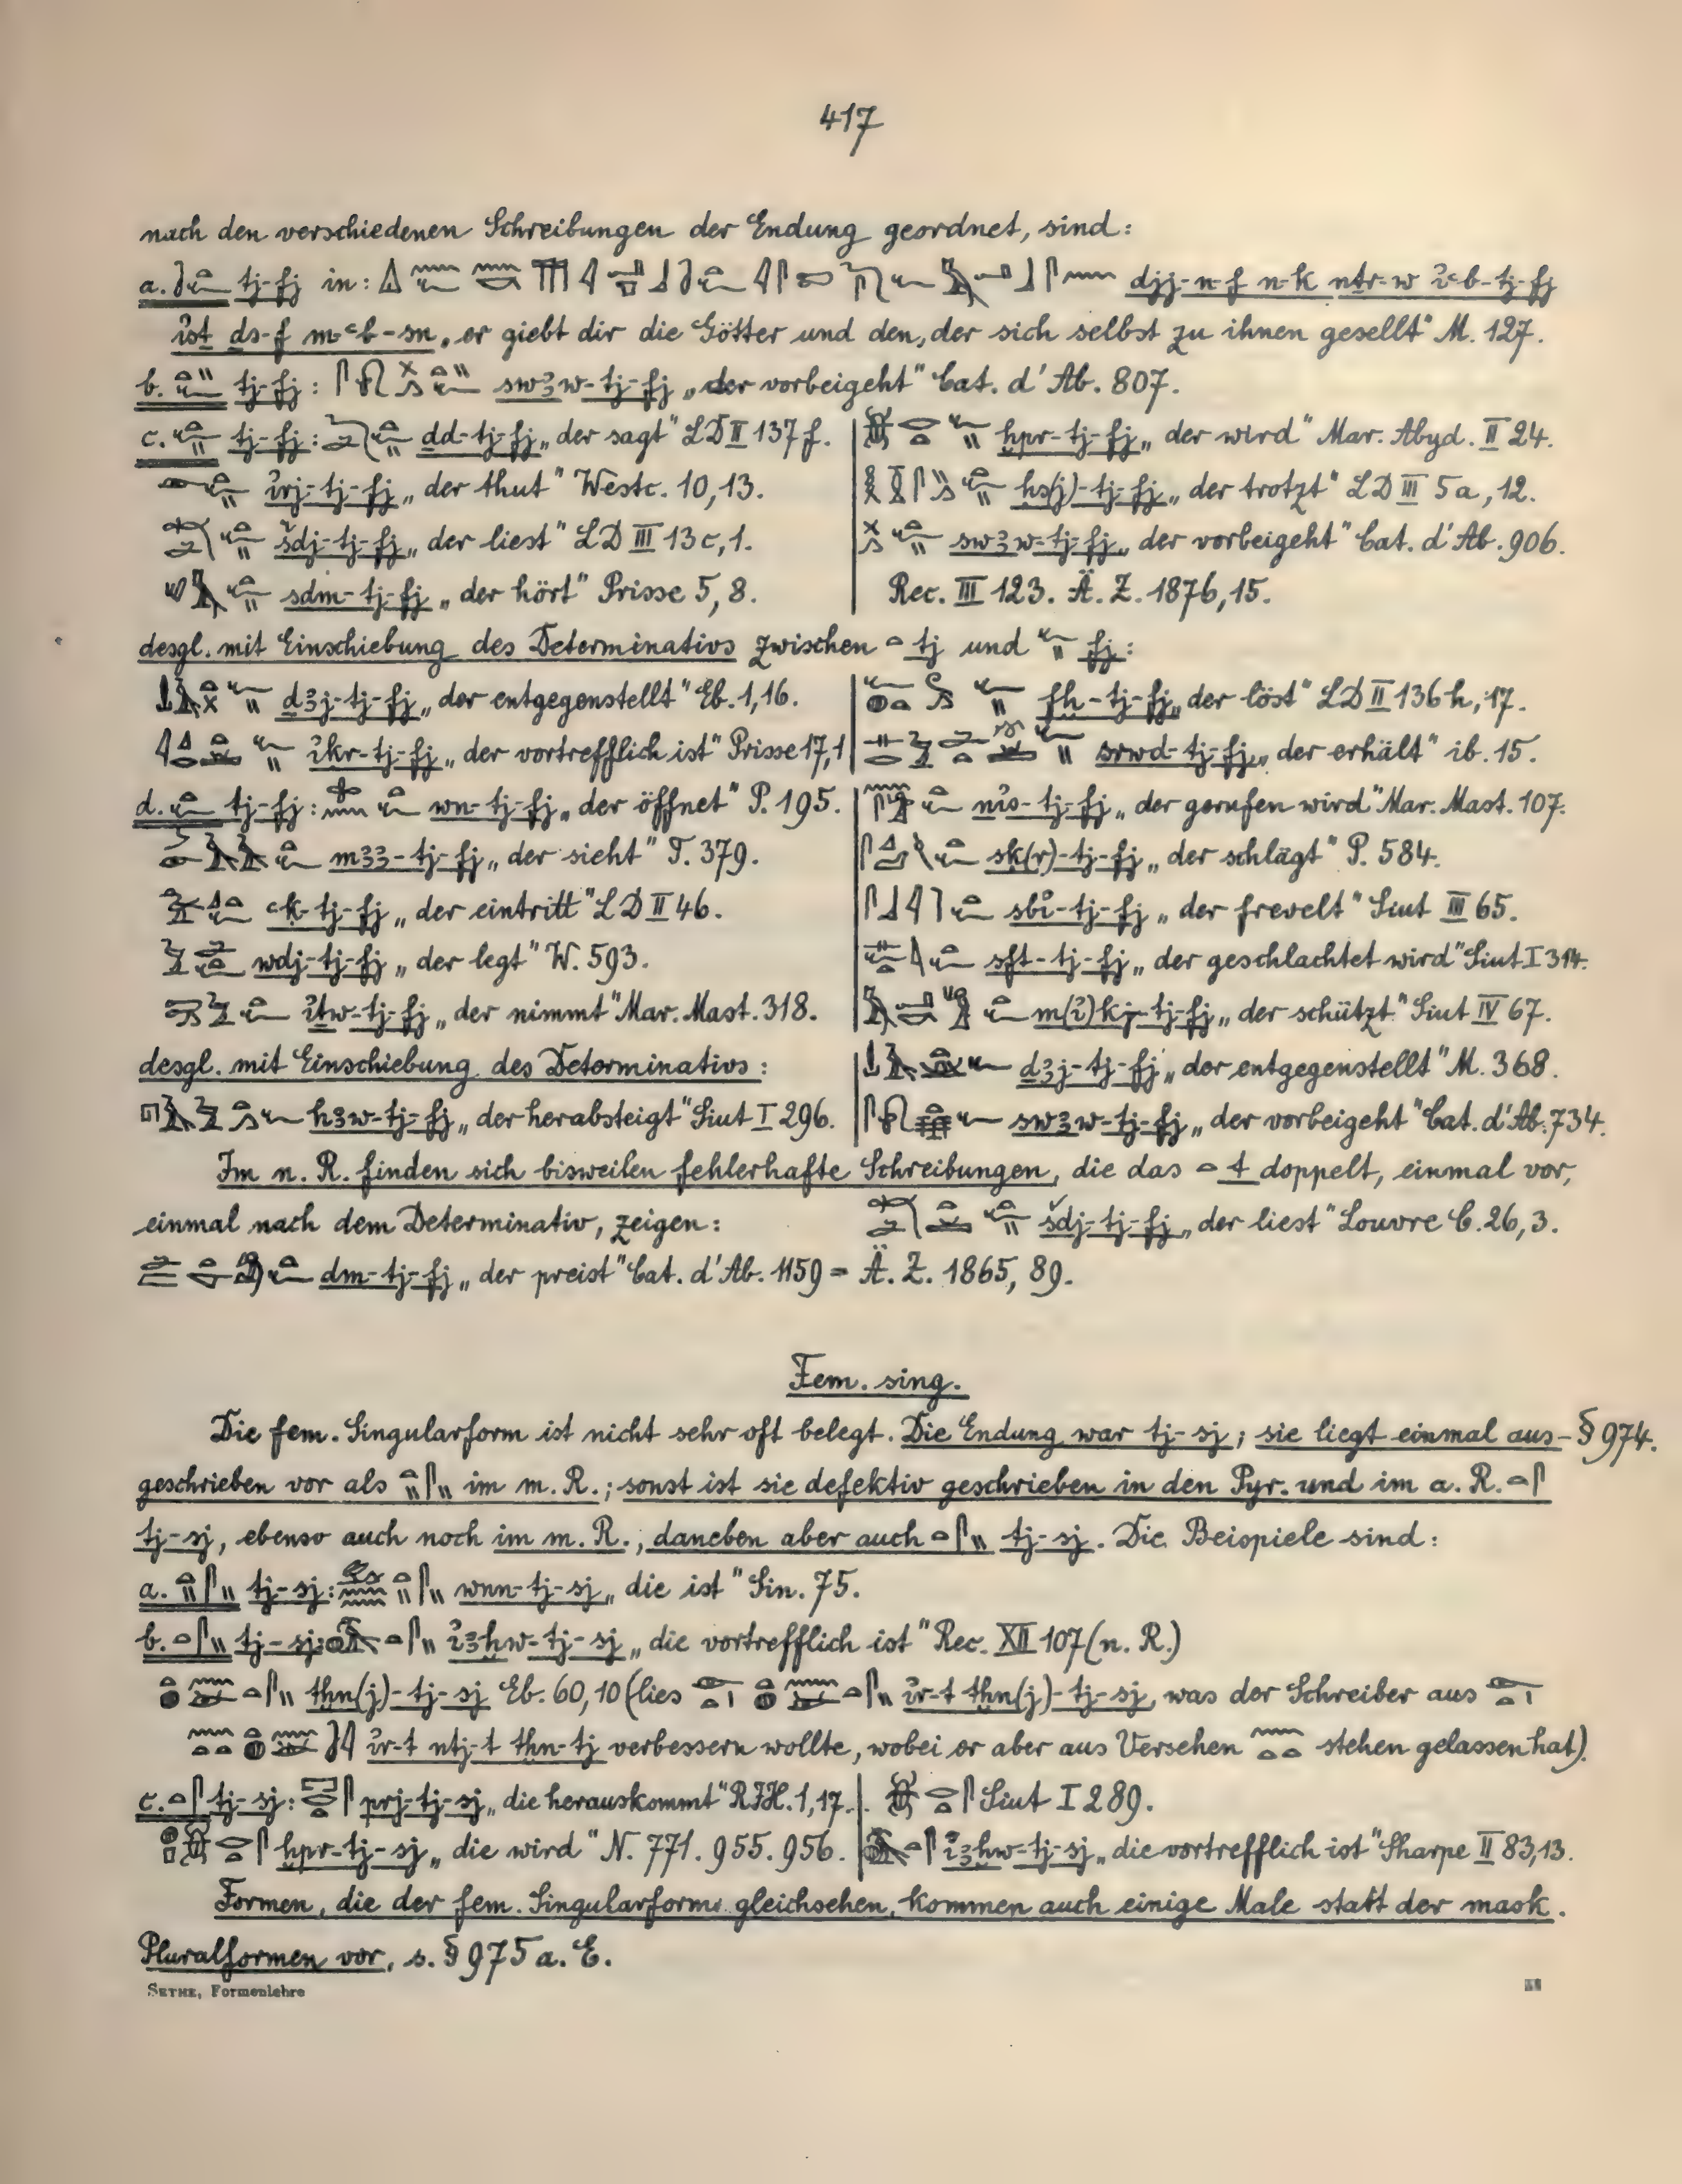 417
nach den verschiedenen Schreibungen der Endung geordnet, sind:
a. tj-fj in: djj-n-f n-k nṯr-w ỉꜥb-tj-fj
ỉst ḏs-f m-ꜥb-sn „er giebt dir die Götter und den, der sich selbst zu ihnen gesellt“ M. 127.
b. tj-fj: swꜣw-tj-fj „der vorbeigeht“ Cat. d'Ab. 807.
c. tj-fj: ḏd-tj-fj „der sagt“ LD II 137 f.
ỉrj-tj-fj „der thut“ Westc. 10,13.
šdj-tj-fj „der liest“ LD III 13c,1.
sḏm-tj-fj „der hört“ Prisse 5,8.
ḫpr-tj-fj „der wird“ Mar. Abyd. II 24.
ḥs(j)-tj-fj „der trotzt“ LD III 5a,12.
swꜣw-tj-fj „der vorbeigeht“ Cat. d'Ab. 906.
Rec. III 123. Ä. Z. 1876,15.
desgl. mit Einschiebung des Determinativs zwischen tj und fj:
ḏꜣj-tj-fj „der entgegenstellt“ Eb. 1,16.
ỉkr-tj-fj „der vortrefflich ist“ Prisse 17,1
fḫ-tj-fj „der löst“ LD II 136h,17.
srwd-tj-fj „der erhält“ ib. 15.
d. tj-fj: wn-tj-fj „der öffnet“ P. 195.
mꜣꜣ-tj-fj „der sieht“ T. 379.
ꜥk-tj-fj „der eintritt“ LD II 46.
wdj-tj-fj „der legt“ W. 593.
ỉṯw-tj-fj „der nimmt“ Mar. Mast. 318.
nỉs-tj-fj „der gerufen wird“ Mar. Mast. 107.
sk(r)-tj-fj „der schlägt“ P. 584.
sbỉ-tj-fj „der frevelt“ Siut III 65.
sft-tj-fj „der geschlachtet wird“ Siut I 314.
m(ỉ)kj-tj-fj „der schützt“ Siut IV 67.
desgl. mit Einschiebung des Determinativs:
hꜣw-tj-fj „der herabsteigt“ Siut I 296.
ḏꜣj-tj-fj „der entgegenstellt“ M. 368.
swꜣw-tj-fj „der vorbeigeht“ Cat. d'Ab. 734.
Im n. R. finden sich bisweilen fehlerhafte Schreibungen, die das t doppelt, einmal vor,
einmal nach dem Determinativ, zeigen: šdj-tj-fj „der liest“ Louvre C. 26,3.
dm-tj-fj „der preist“ Cat. d'Ab. 1159 = Ä. Z. 1865, 89.
Fem. sing.
Die fem. Singularform ist nicht sehr oft belegt. Die Endung war tj-sj; sie liegt einmal aus- § 974.
geschrieben vor als im m. R.; sonst ist sie defektiv geschrieben in den Pyr. und im a. R.
tj-sj, ebenso auch noch im m. R., daneben aber auch tj-sj. Die Beispiele sind:
a. tj-sj: wnn-tj-sj „die ist“ Sin. 75.
b. tj-sj: ỉꜣḫw-tj-sj „die vortrefflich ist“ Rec. XII 107 (n. R.)
tḫn(j)-tj-sj Eb. 60,10 (lies ỉr-t tḫn(j)-tj-sj, was der Schreiber aus
ỉr-t ntj-t tḫn-tj verbessern wollte, wobei er aber aus Versehen stehen gelassen hat).
c. tj-sj: prj-tj-sj „die herauskommt“ RJH. 1,17.
ḫpr-tj-sj „die wird“ N. 771. 955. 956.
Siut I 289.
ỉꜣḫw-tj-sj „die vortrefflich ist“ Sharpe II 83,13.
Formen, die der fem. Singularform gleichsehen, kommen auch einige Male statt der mask.
Pluralformen vor, s. § 975 a. E.
SETHE, Formenlehre